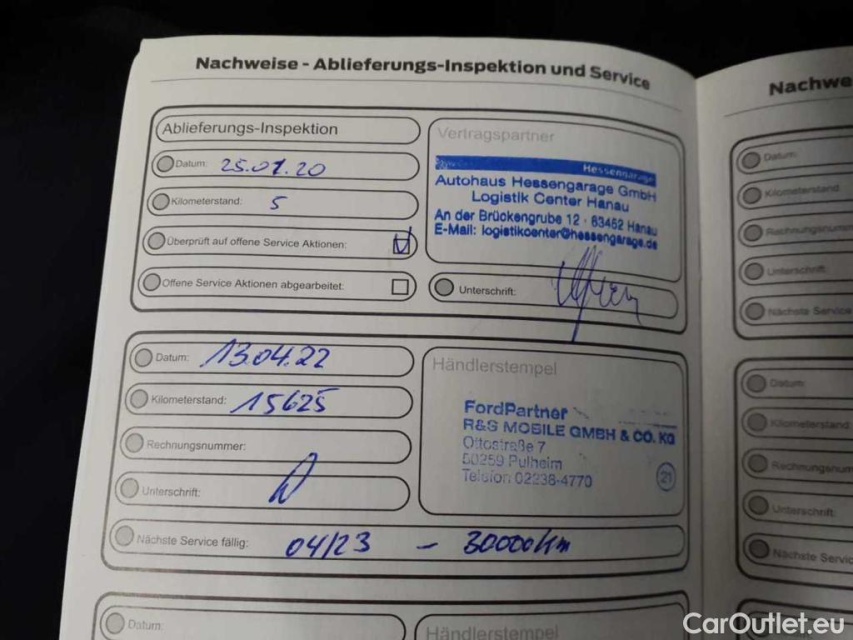 Nachweise - Ablieferungs-Inspektion und Service
Ablieferungs-Inspektion
Datum: 25.01.20
Kilometerstand: 5
Überprüft auf offene Service Aktionen:
Offene Service Aktionen abgearbeitet:
Vertragspartner
Hessengarage
Autohaus Hessengarage GmbH
Logistik Center Hanau
An der Brückengrube 12 · 63452 Hanau
E-Mail: logistikcenter@hessengarage.de
Unterschrift:
Datum: 13.04.22
Kilometerstand: 15625
Rechnungsnummer:
Unterschrift:
Händlerstempel
FordPartner
R&S MOBILE GMBH & CO. KG
Ottostraße 7
50259 Pulheim
Telefon 02238-4770
21
Nächste Service fällig: 04/23 - 30000km
Datum:
Händlerstempel
Nachwe
Datum:
Kilometerstand
Rechnungsnum
Unterschrift:
Nächste Service
Datum:
Kilometerstand
Rechnungsnum
Unterschrift:
Nächste Servic
CarOutlet.eu